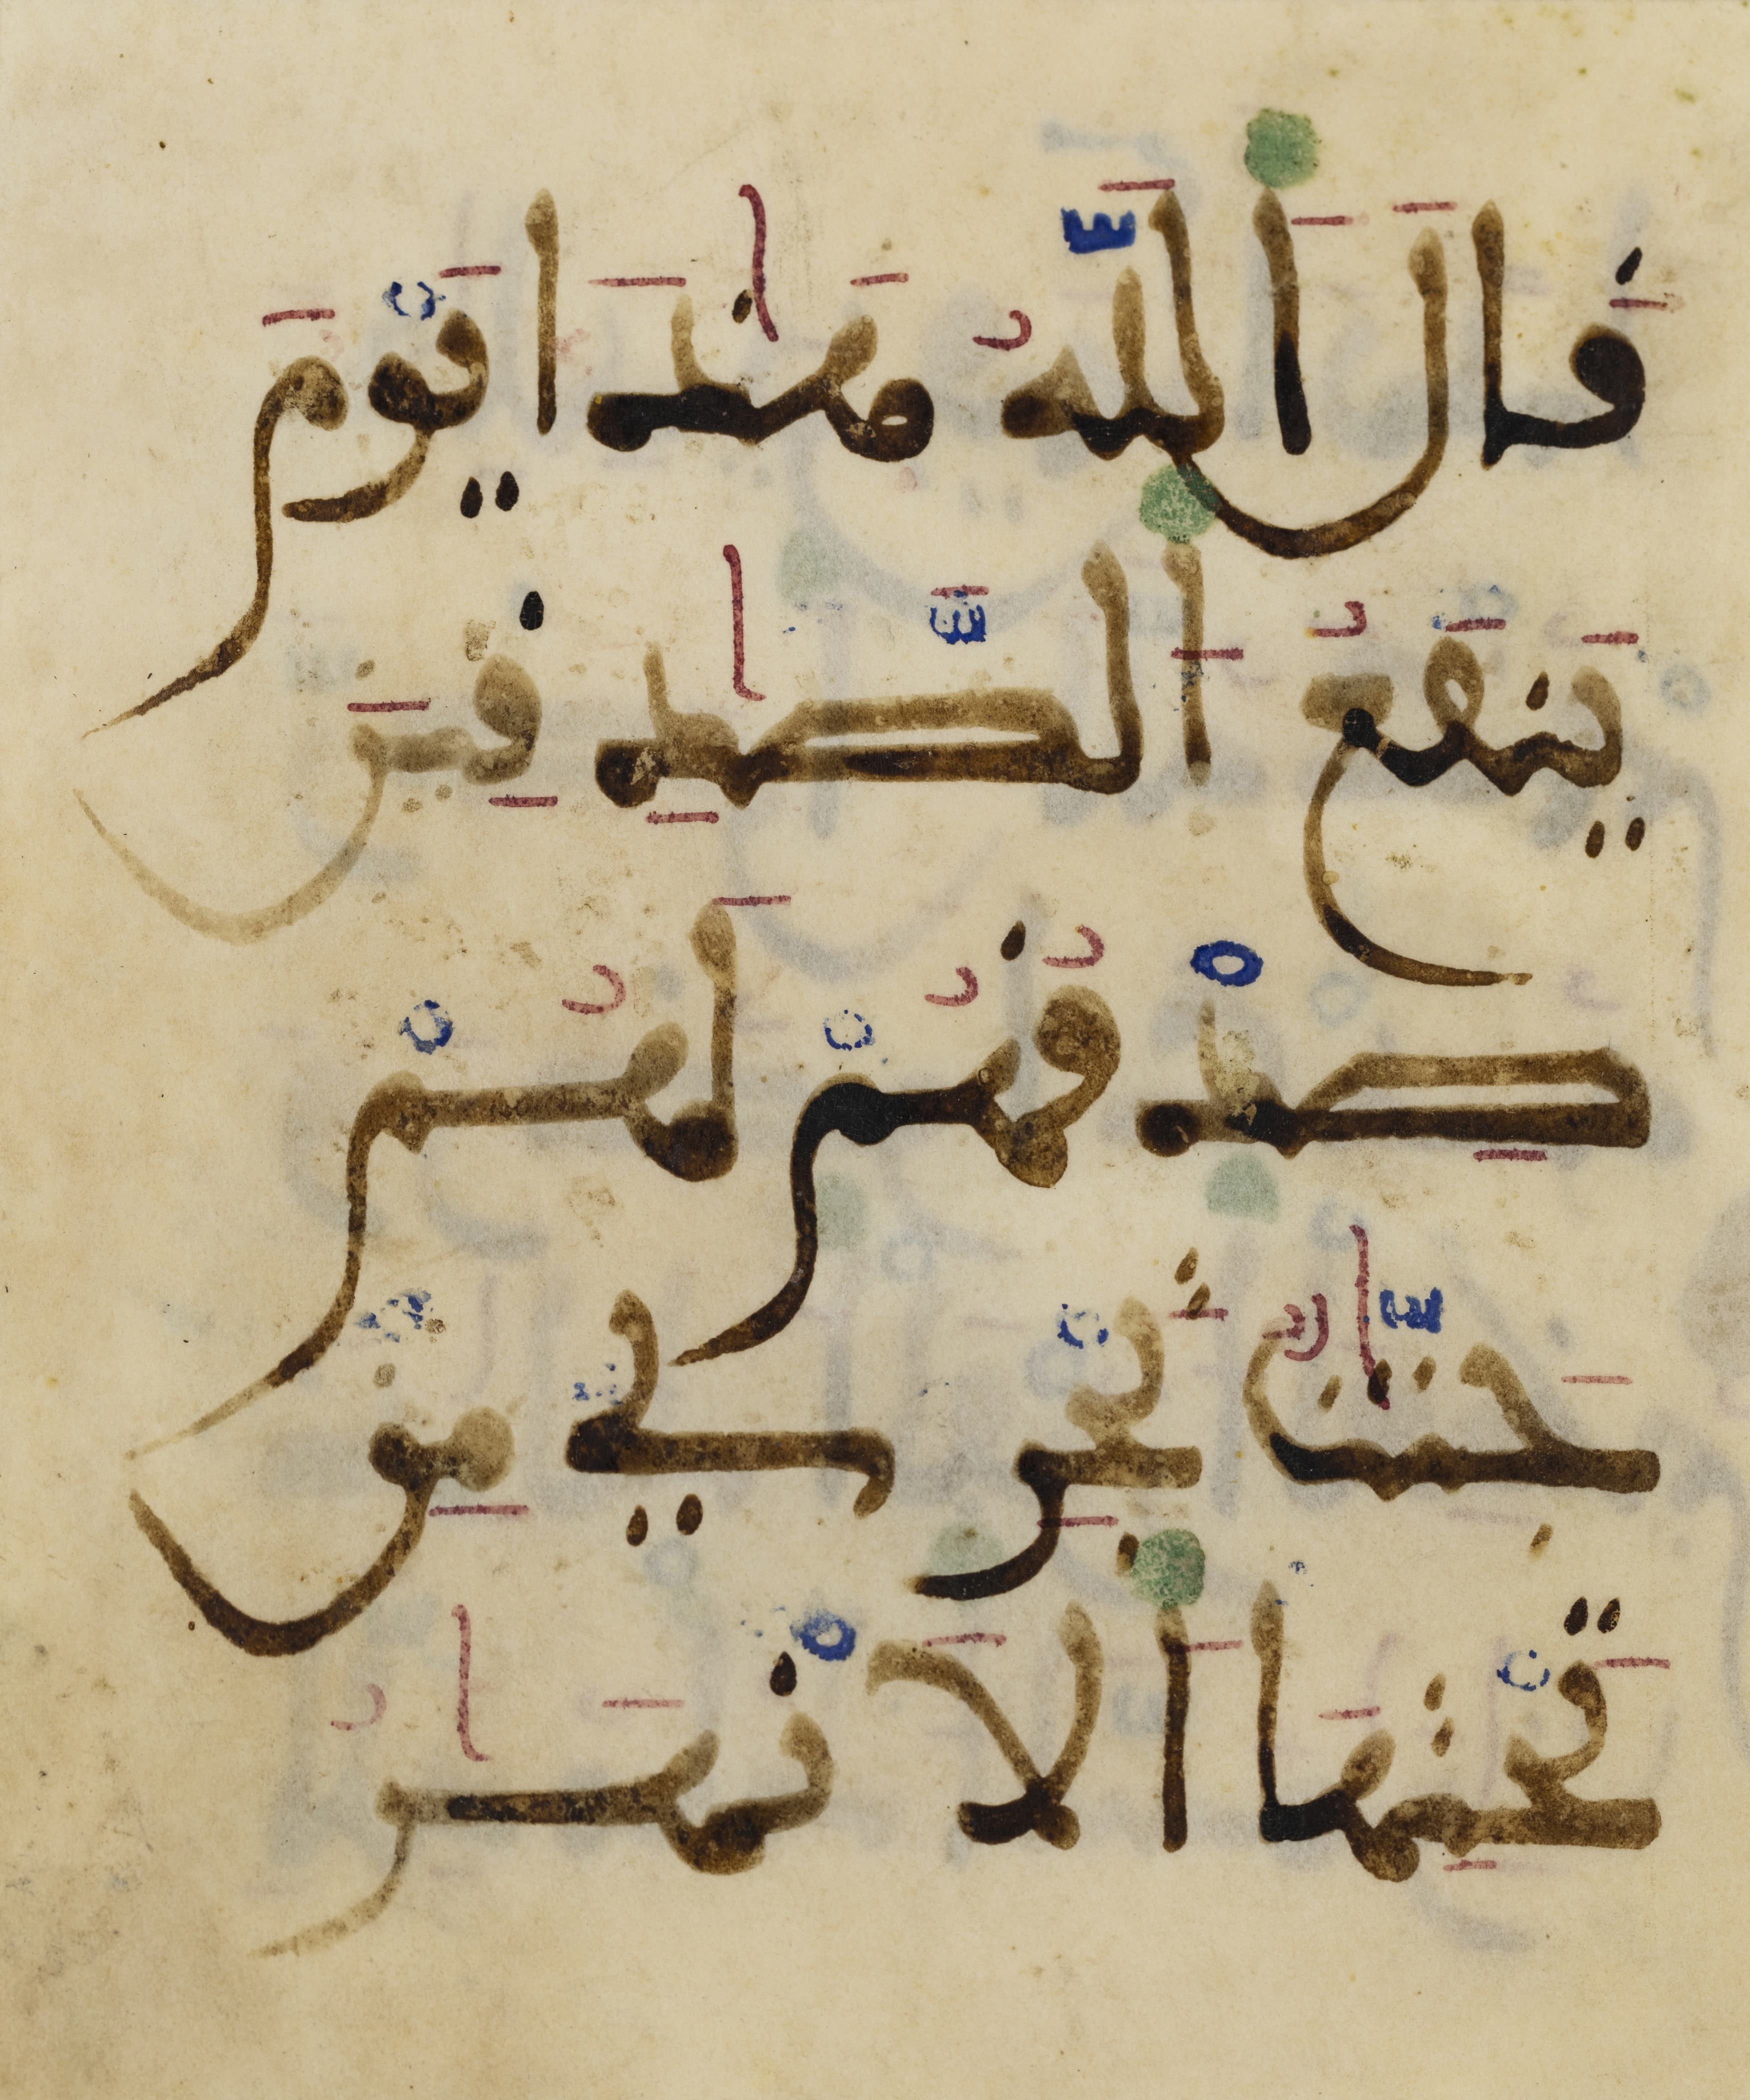 قَالَ اَللَّهُ هَٰذَا يَوْمَ
يَنفَعُ اَلصَّٰدِقِينَ
صِدْقُهُمْ لَهُمْ
جَنَّٰتٌ تَجْرِي مِنْ
تَحْتِهَا اَلَانْهَٰرُ